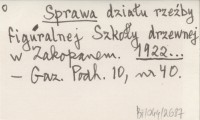 Sprawa działu rzeźby
figuralnej Szkoły drzewnej
w Zakopanem. 1922...
– Gaz. Podh. 10, nr 40.